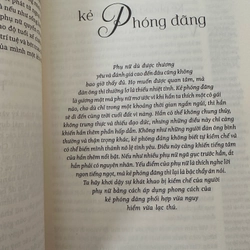 kẻ
Phóng đãng
Phụ nữ dù được thương
yêu và đánh giá cao đến đâu cũng không
bao giờ thấy đủ. Họ muốn được quan tâm, mà
đàn ông thì thường lơ là thiếu nhiệt tình. Kẻ phóng đãng
là gương mặt mà phụ nữ mơ ước vì khi hắn ta thích một cô gái
nào, cho dù chỉ trong một khoảng thời gian ngắn ngủi, thì hắn sẽ
đi đến cùng trời cuối đất vì nàng. Hắn có thể không chung thủy,
không trung thực và thiếu đạo đức, nhưng những điều đó chỉ
khiến hắn thêm phần hấp dẫn. Không giống như những người đàn ông bình
thường và thận trọng khác, kẻ phóng đãng không biết kiềm chế và không
có thể biến mình thành nô lệ vì tình yêu. Điều này càng khiến tiếng tăm
của hắn thêm nổi bật. Nếu như nhiều phụ nữ ngã gục trước hắn, ắt
phải có nguyên nhân. Yếu điểm của phụ nữ là thích nghe lời
ngon tiếng ngọt, mà kẻ phóng đãng thì lại là bậc thầy ăn nói.
Ta hãy khơi dậy sự khát khao bị kiềm chế của người
phụ nữ bằng cách áp dụng phong cách của
kẻ phóng đãng phối hợp vừa nguy
hiểm vừa lạc thú.